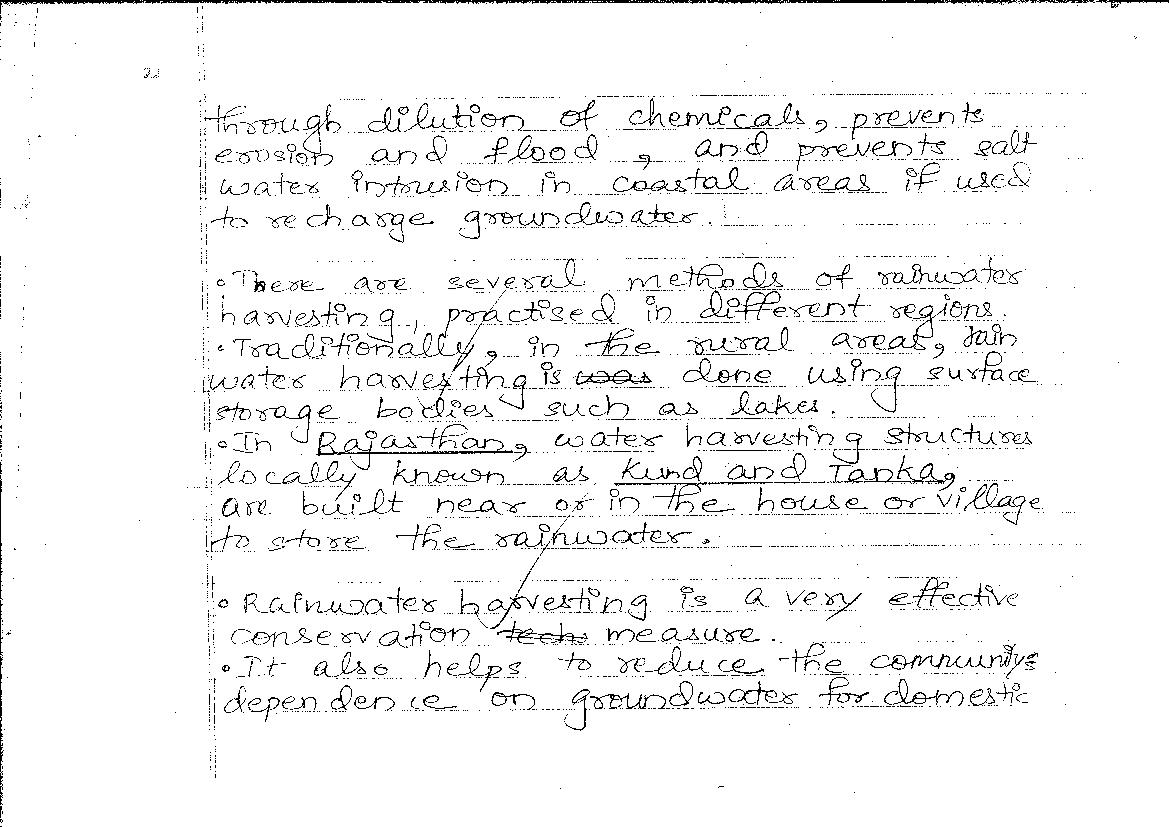 through dilution of chemicals, prevents
erosion and flood, and prevents salt
water intrusion in coastal areas if used
to recharge groundwater.
• There are several methods of rainwater
harvesting, practised in different regions.
• Traditionally, in the rural areas, rain
water harvesting is was done using surface
storage bodies such as lakes.
• In Rajasthan, water harvesting structures
locally known as Kund and Tanka,
are built near or in the house or village
to store the rainwater.
• Rainwater harvesting is a very effective
conservation measure.
• It also helps to reduce the community's
dependence on groundwater for domestic